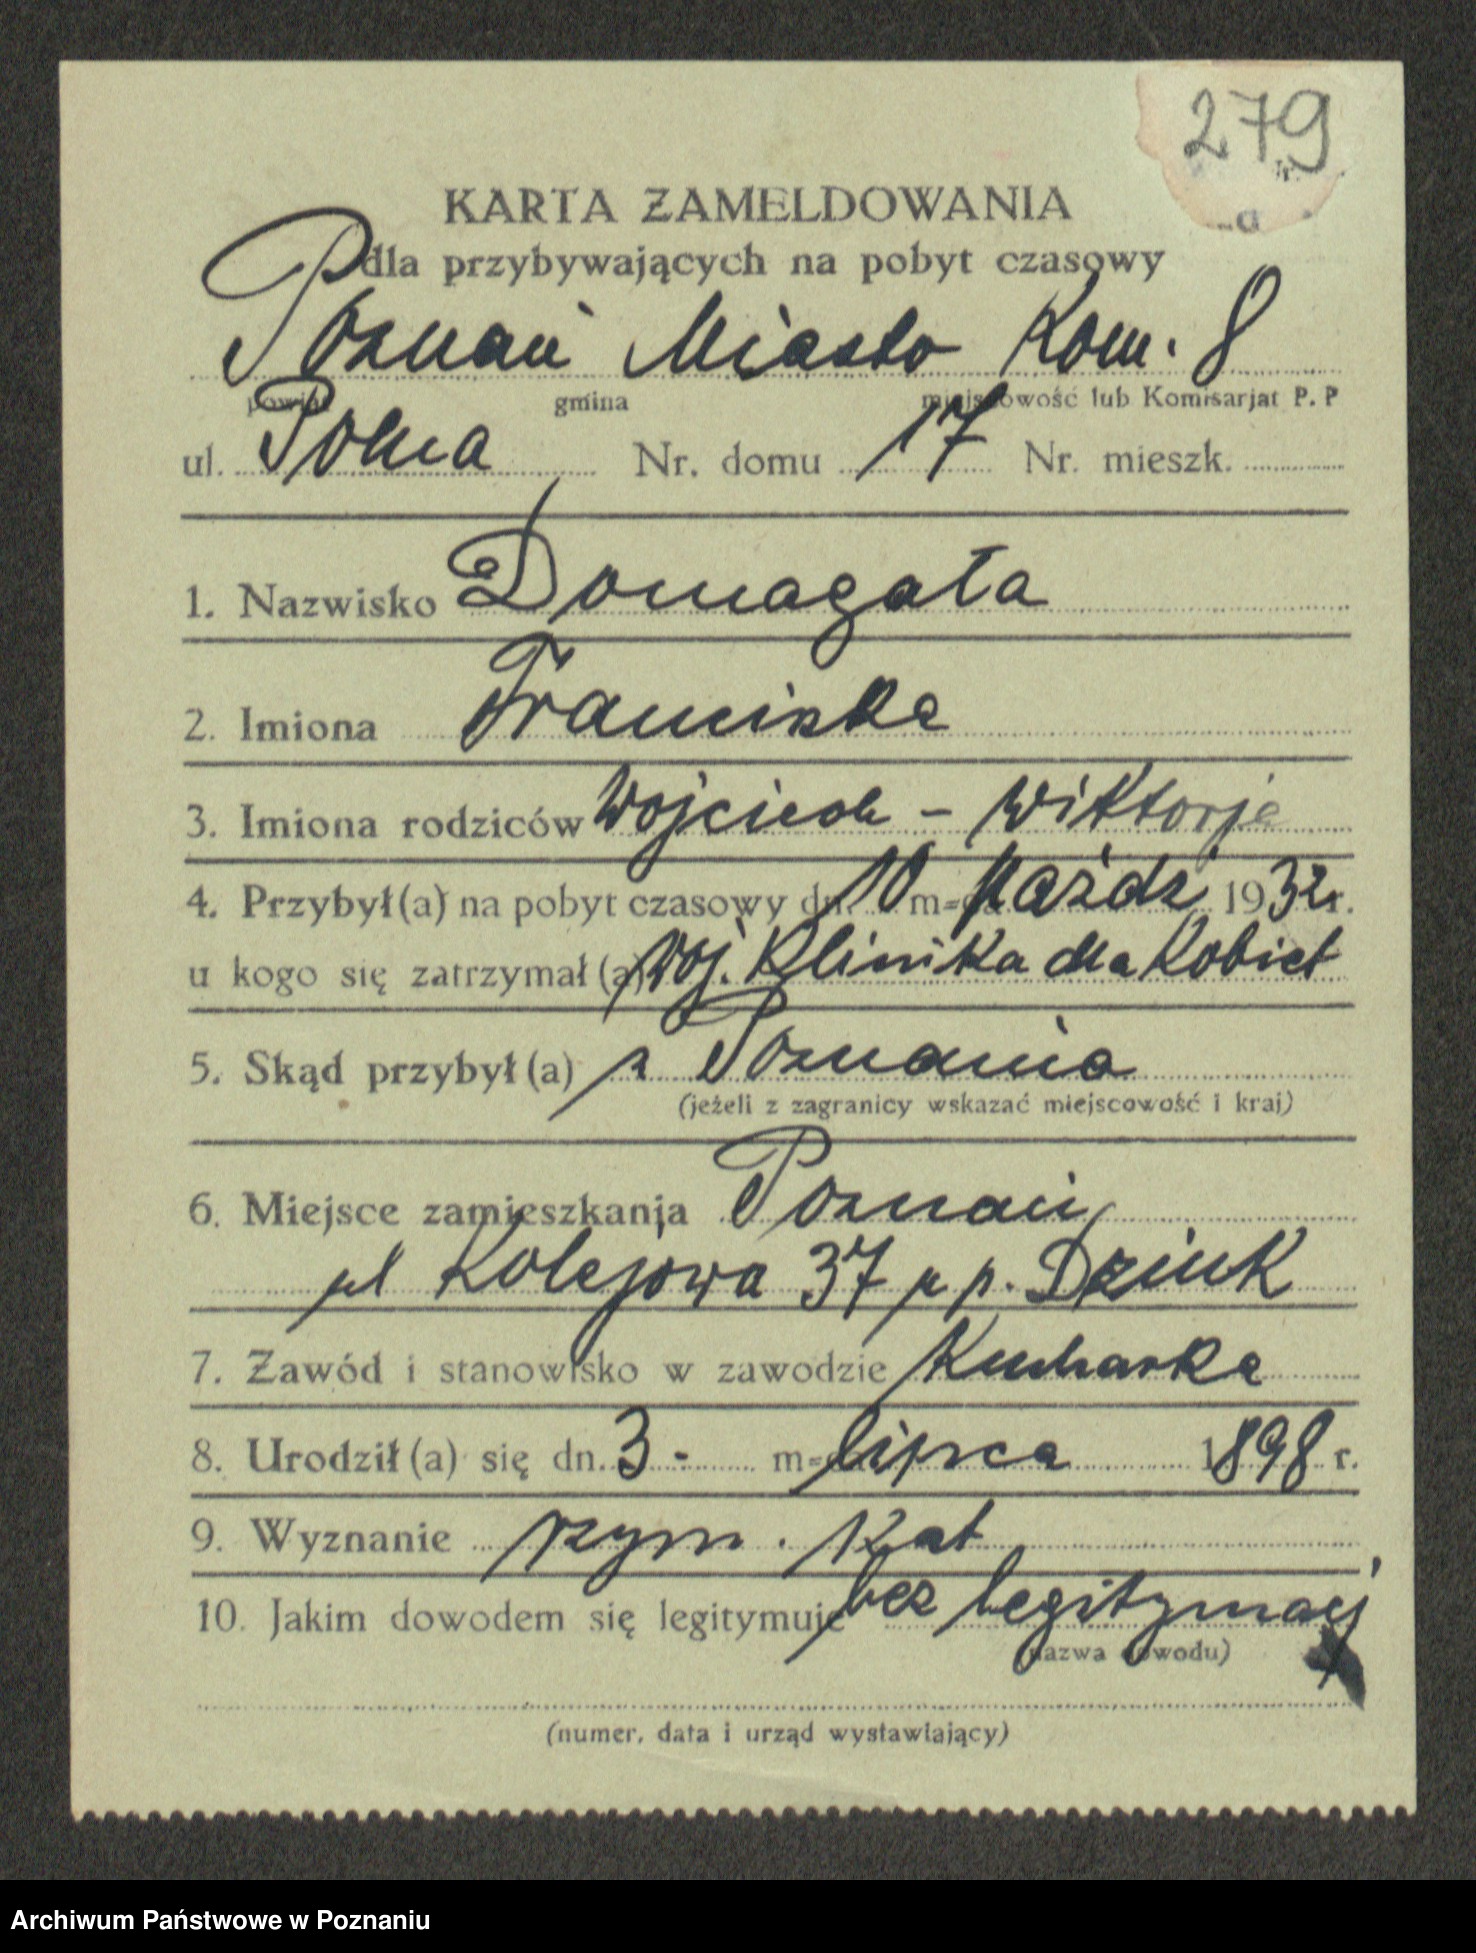 279
KARTA ZAMELDOWANIA
dla przybywających na pobyt czasowy
Poznań Miasto Kom. 8
powiat gmina miejscowość lub Komisarjat P. P
ul. Polna Nr. domu 17 Nr. mieszk.
1. Nazwisko Domagała
2. Imiona Franciszka
3. Imiona rodziców Wojciech - Wiktorja
4. Przybył(a) na pobyt czasowy dn. 10 m-ca Paźdz 1932 r.
u kogo się zatrzymał (a) Woj. Klinika dla Kobiet
5. Skąd przybył (a) z Poznania
(jeżeli z zagranicy wskazać miejscowość i kraj)
6. Miejsce zamieszkania Poznań
ul Kolejowa 37 u p. Dziuk
7. Zawód i stanowisko w zawodzie Kucharka
8. Urodził (a) się dn. 3 - m-ca lipca 1898 r.
9. Wyznanie rzym. kat
10. Jakim dowodem się legitymuje bez legitymacji
(nazwa dowodu)
(numer, data i urząd wystawiający)
Archiwum Państwowe w Poznaniu